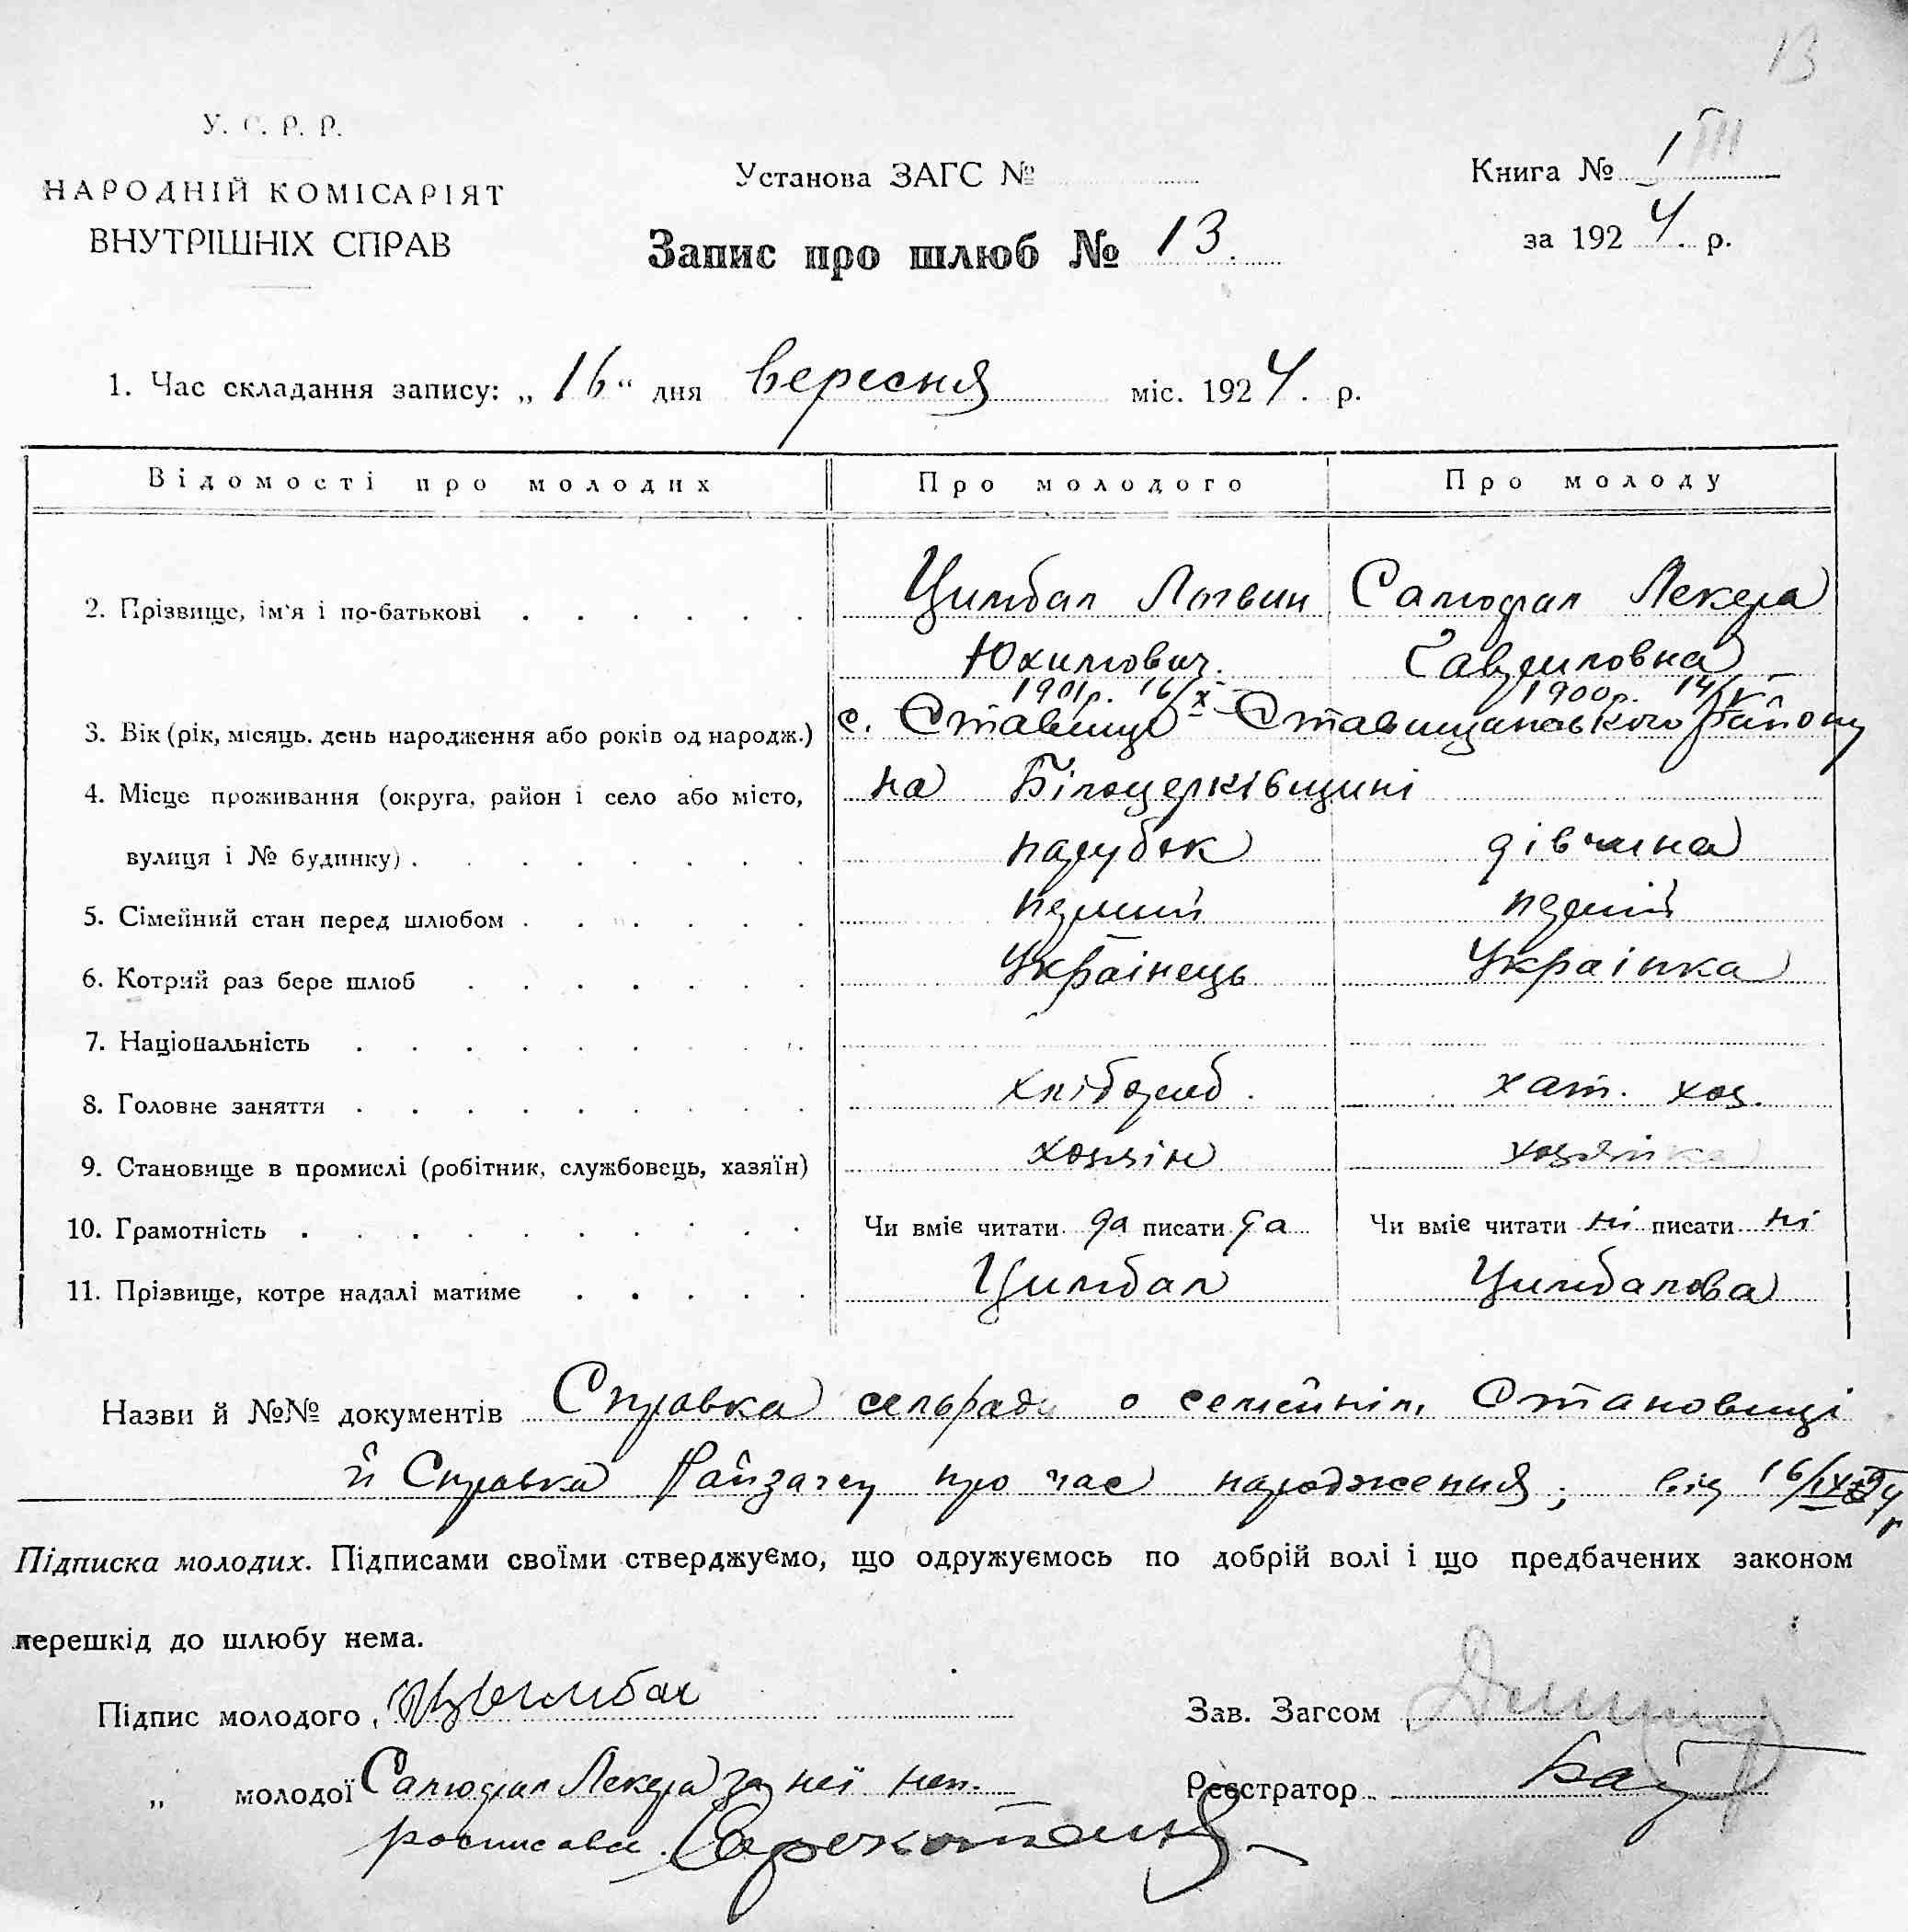 13
У. С. Р. Р.
НАРОДНІЙ КОМІСАРІЯТ
ВНУТРІШНІХ СПРАВ
Установа ЗАГС №
Запис про шлюб № 13.
Книга № I III
за 1924. р.
1. Час складання запису: „16“ дня вересня міс. 1924. р.
Відомості про молодих Про молодого Про молоду
2. Прізвище, ім'я і по-батькові Цимбал Логвин Самодрал Лекера
Юхимович. Гаврыловна
1901р. 16/X 1900р. 14/V
3. Вік (рік, місяць, день народження або років од народж.) с. Ставище Ставищанського району
4. Місце проживання (округа, район і село або місто, на Білоцерківщині
вулиця і № будинку) парубок дівчина
5. Сімейний стан перед шлюбом перший перший
6. Котрий раз бере шлюб Українець Українка
7. Національність
8. Головне заняття хлібороб. хат. хоз.
9. Становище в промислі (робітник, службовець, хазяїн) хозяін хозяйка
10. Грамотність Чи вміє читати да писати да Чи вміє читати ні писати ні
11. Прізвище, котре надалі матиме Цимбал Цимбалова
Назви й №№ документів Справка сельради о семейнім Становищі
й Справка Райзагсу про час народження; від 16/IX 24 r
Підписка молодих. Підписами своїми стверджуємо, що одружуємось по добрій волі і що предбачених законом
перешкід до шлюбу нема.
Підпис молодого, Цымбал
Зав. Загсом
„ молодої Лекера за неї неп.
Реєстратор
росписавс